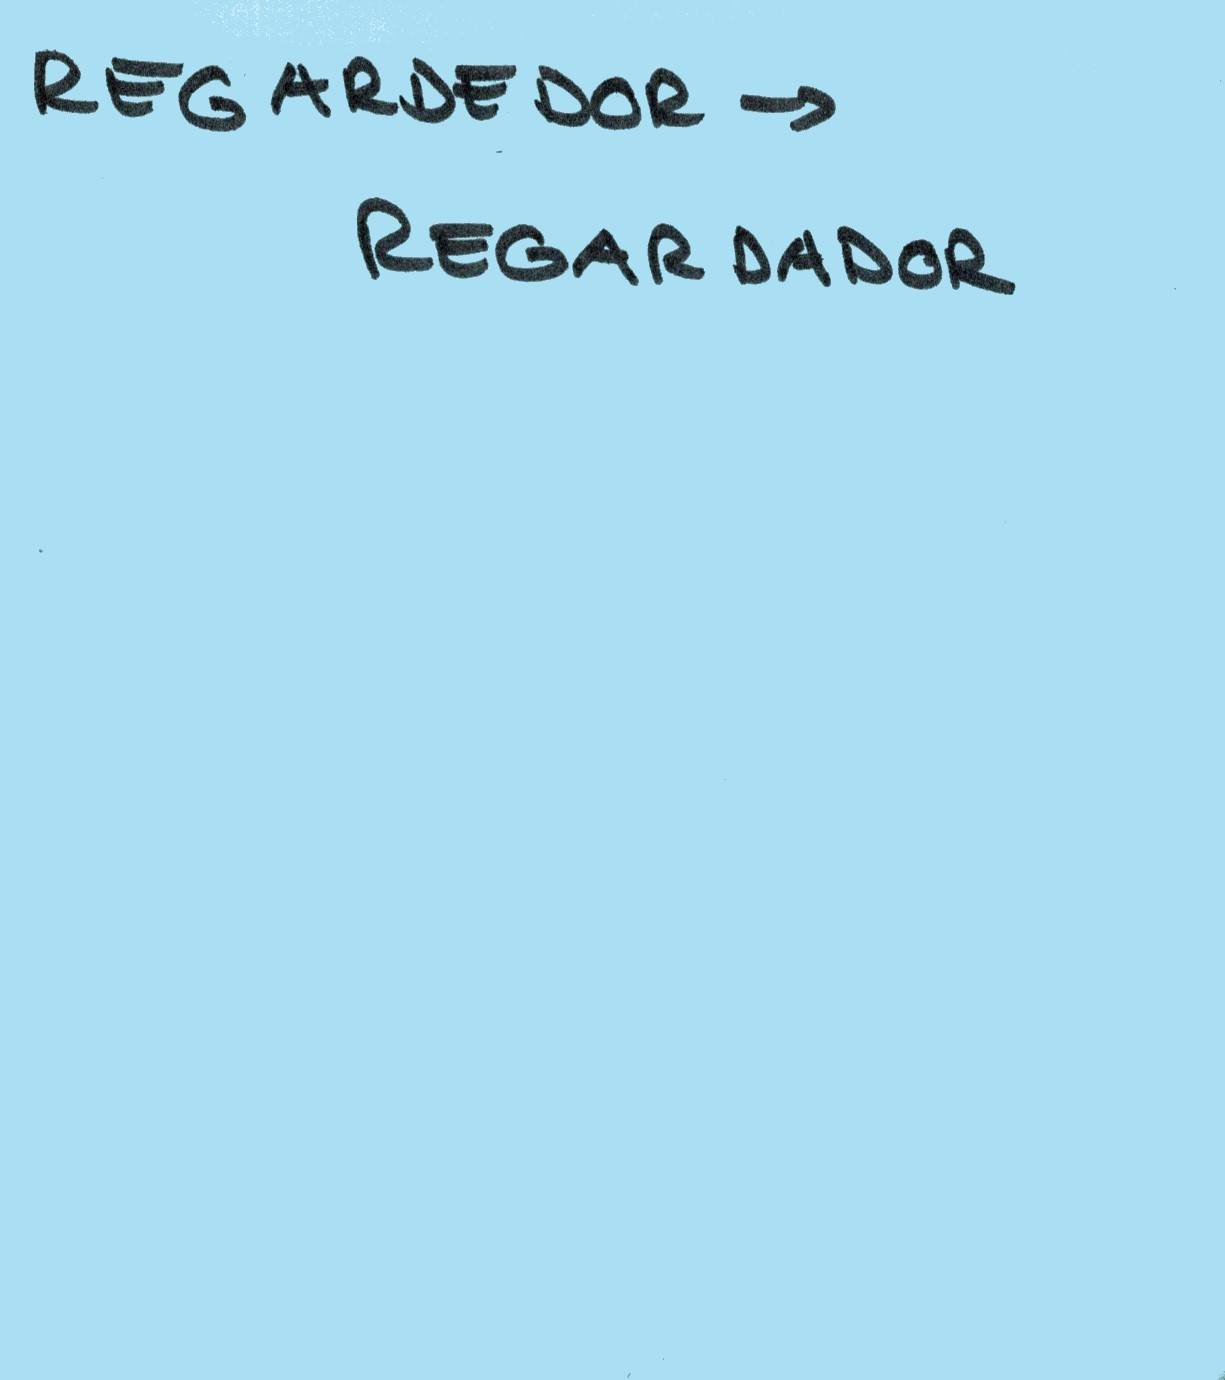 REGARDEDOR →
REGARDADOR